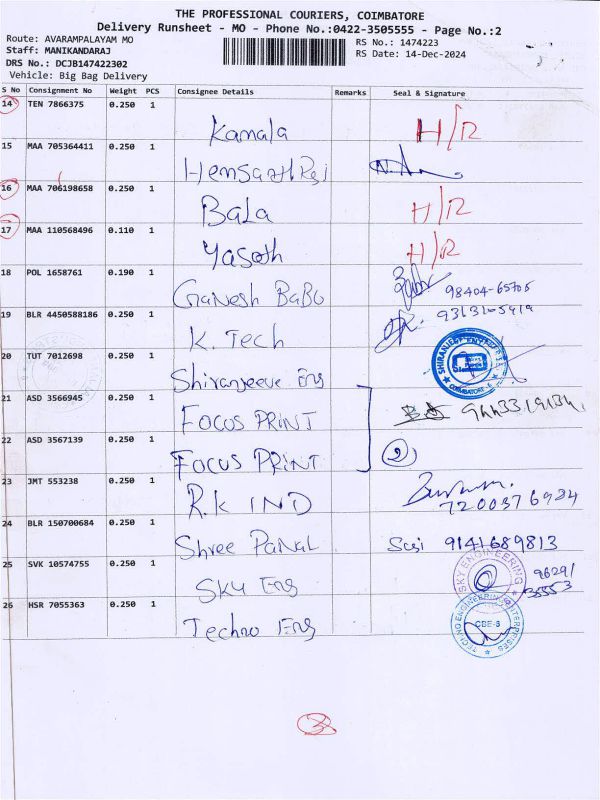 THE PROFESSIONAL COURIERS, COIMBATORE
Delivery Runsheet - MO - Phone No.:0422-3505555 - Page No.:2
Route: AVARAMPALAYAM MO
Staff: MANIKANDARAJ
RS No.: 1474223
DRS No.: DCJB147422302
RS Date: 14-Dec-2024
Vehicle: Big Bag Delivery
S No Consignment No Weight PCS Consignee Details Remarks Seal & Signature
14 TEN 7866375 0.250 1 Kamala H/R
15 MAA 705364411 0.250 1
16 MAA 706198658 0.250 1 Bala H/R
17 MAA 110568496 0.110 1 Yasoth H/R
18 POL 1658761 0.190 1 Ganesh Babu 98404-65705
19 BLR 4450588186 0.250 1 K. Tech
20 TUT 7012698 0.250 1 Shiranjeeve Eng
21 ASD 3566945 0.250 1 FOCUS PRINT
22 ASD 3567139 0.250 1 FOCUS PRINT 2
23 JMT 553238 0.250 1 R.K IND 7200376984
24 BLR 150700684 0.250 1 Shree Panal Sasi 9141689813
25 SVK 10574755 0.250 1 Sky Eng SKY ENGINEERING
26 HSR 7055363 0.250 1 Techno Eng TECHNO ENGINEERING ENTERPRISES CBE-6
3